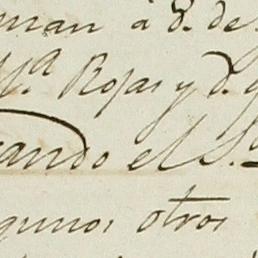 man á d. de
M.ª Rojas y d.
ando el S.
gunos otros